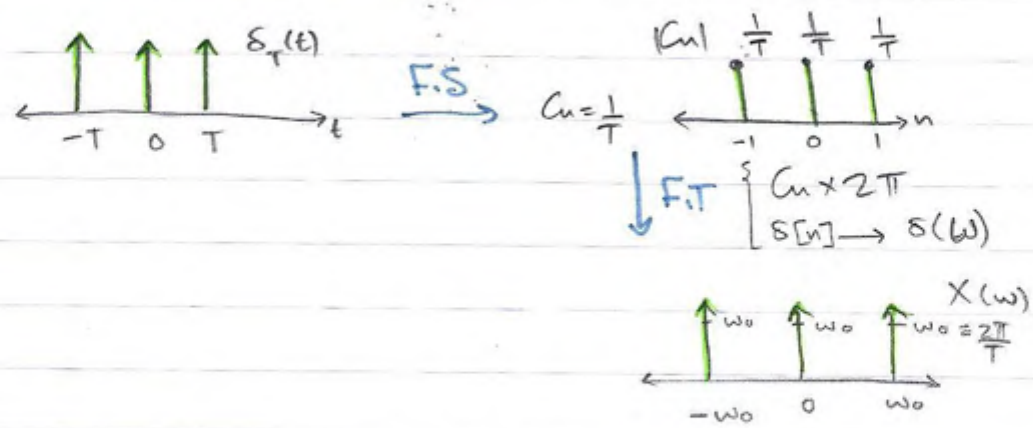 δ_T(t)
-T 0 T t
F.S
|Cn| 1/T 1/T 1/T
Cn = 1/T
-1 0 1 n
F.T
Cn × 2π
δ[n] → δ(ω)
X(ω)
ω₀ ω₀ ω₀ = 2π/T
-ω₀ 0 ω₀